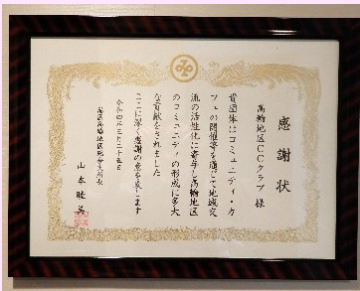 感謝状
高輪地区CCクラブ 様
貴団体はコミュニティ・カ
フェの開催等を通じて地域交
流の活性化に寄与し高輪地区
のコミュニティの形成に多大
な貢献をされました
ここに深く感謝の意を表します
令和四年三月二十五日
港区高輪地区総合支所長
山本睦美